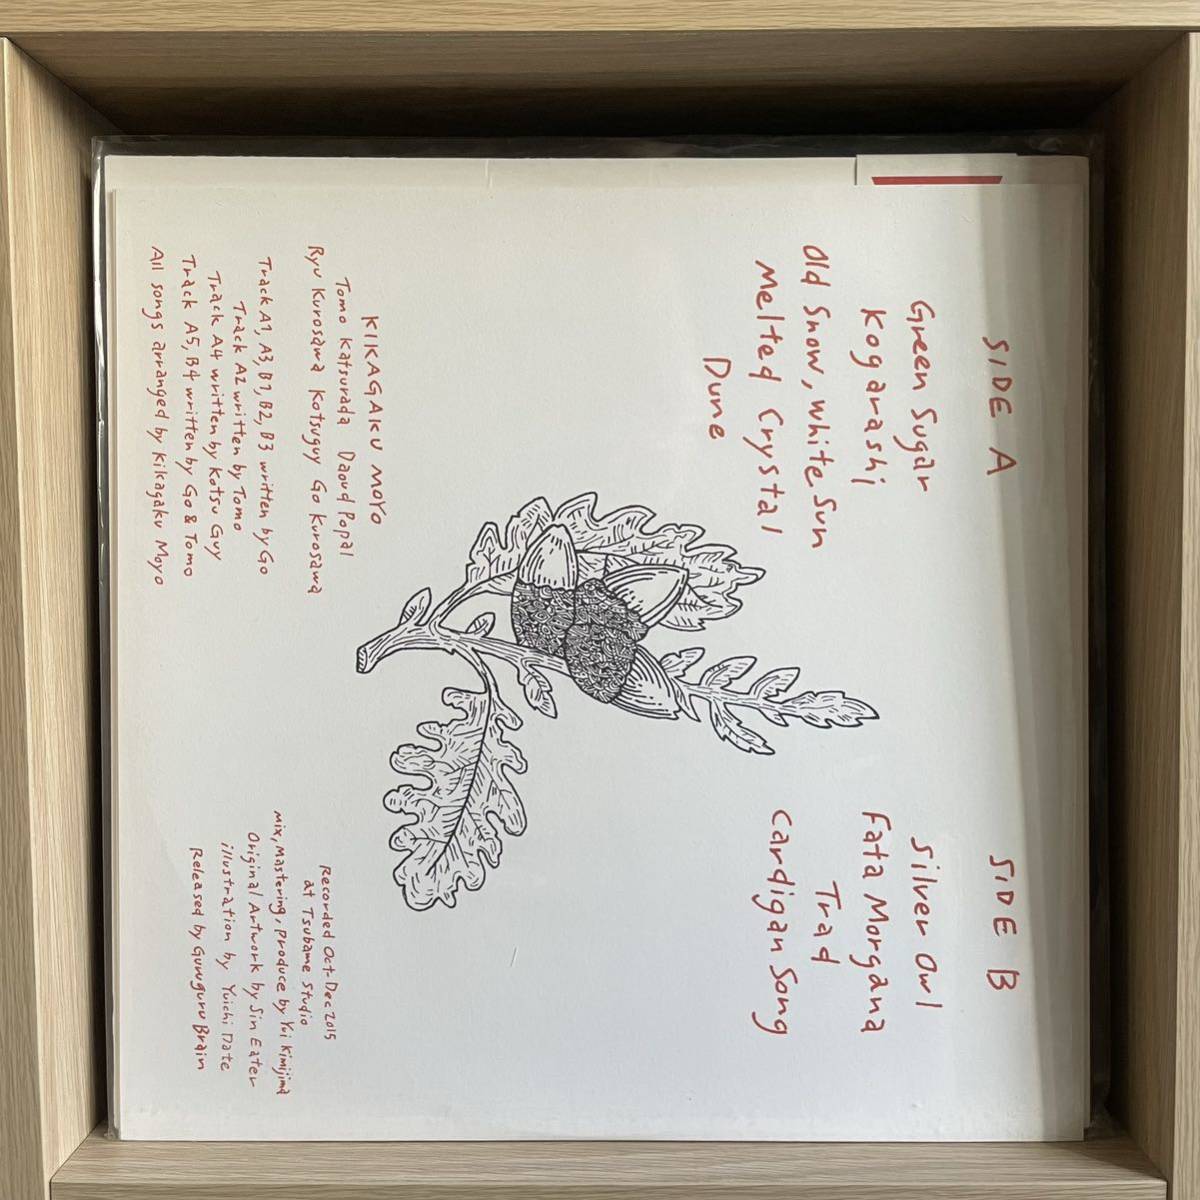 SIDE A
Green Sugar
Kogarashi
Old Snow, White Sun
Melted Crystal
Dune
SIDE B
Silver Owl
Fata Morgana
Trad
Cardigan Song
KIKAGAKU MOYO
Tomo Katsurada Daoud Popal
Ryu Kurosawa Kotsuguy Go Kurosawa
Track A1, A3, B1, B2, B3 written by Go
Track A2 written by Tomo
Track A4 written by Kotsu Guy
Track A5, B4 written by Go & Tomo
All songs arranged by Kikagaku Moyo
Recorded Oct-Dec 2015
at Tsubame Studio
Mix, Mastering, Produce by Yui Kimijima
Original Artwork by Sin Eater
illustration by Yuichi Date
Released by Guruguru Brain